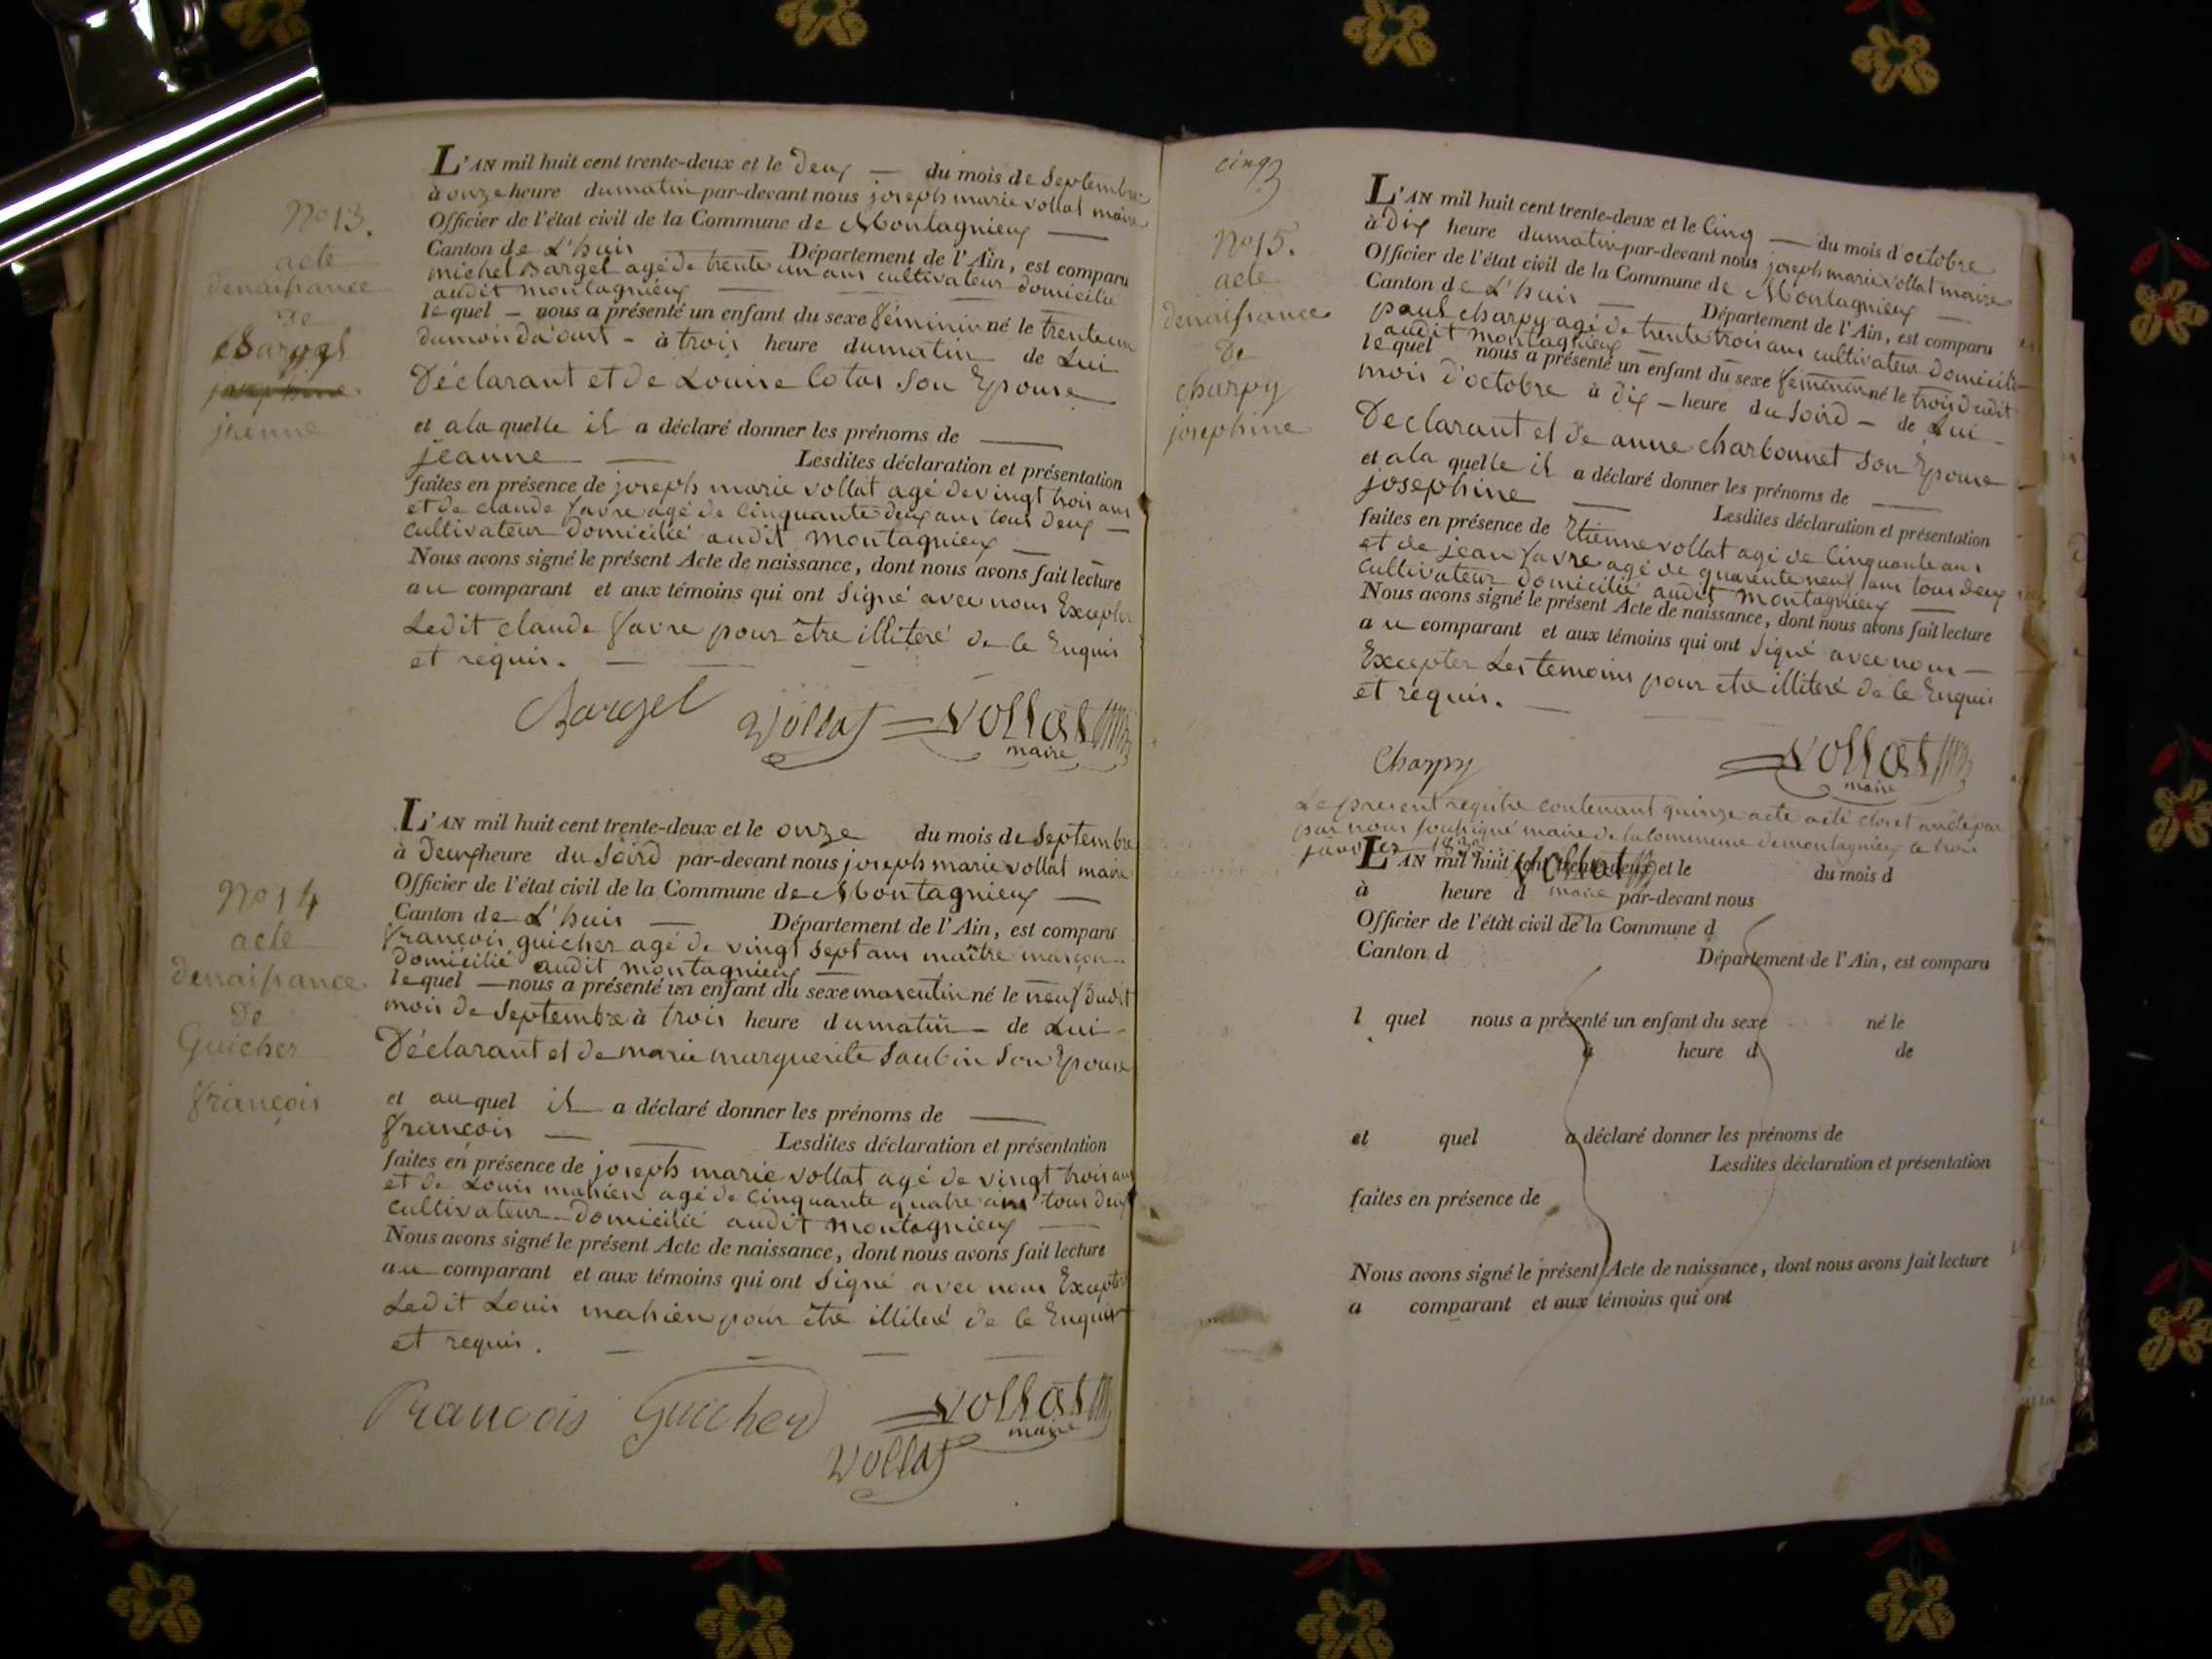 No 13.
acte
denaissance
de
Bargel
josephine
jeanne
L'AN mil huit cent trente-deux et le deux — du mois de Septembre
à onze heure du matin par-devant nous joseph marie vollat maire
Officier de l'état civil de la Commune de Montagnieux —
Canton de L'huis — Département de l'Ain, est comparu
michel Bargel agé de trente un ans cultivateur domicilié
audit montagnieux —
lequel — nous a présenté un enfant du sexe féminin né le trente un
du mois d'aout - à trois heure du matin de Lui
Déclarant et de Louise Cotas Son Epouse
et a la quelle il a déclaré donner les prénoms de —
jeanne — Lesdites déclaration et présentation
faites en présence de joseph marie vollat agé de vingt trois ans
et de claude favre agé de Cinquante deux ans tous deux —
Cultivateur domicilié audit montagnieux —
Nous avons signé le présent Acte de naissance, dont nous avons fait lecture
au comparant et aux témoins qui ont Signé avec nous Excepter
Ledit claude favre pour être illiteré de ce Enquis
et requis. —
Bargel Vollat Vollat
maire
No 14
acte
denaissance
de
Guicher
françois
L'AN mil huit cent trente-deux et le onze du mois de Septembre
à deux heure du Soird par-devant nous joseph marie vollat maire
Officier de l'état civil de la Commune de Montagnieux —
Canton de L'huis — Département de l'Ain, est comparu
françois guicher agé de vingt Sept ans maître maçon
domicilié audit montagnieux —
lequel — nous a présenté un enfant du sexe masculin né le neuf dudit
mois de Septembre à trois heure du matin - de Lui -
Déclarant et de marie marguerite Saubin Son Epouse
et au quel il a déclaré donner les prénoms de —
françois — Lesdites déclaration et présentation
faites en présence de joseph marie vollat agé de vingt trois ans
et de Louis mahien agé de Cinquante quatre ans tous deux
Cultivateur domicilié audit montagnieux —
Nous avons signé le présent Acte de naissance, dont nous avons fait lecture
au comparant et aux témoins qui ont Signé avec nous Excepter
Ledit Louis mahien pour être illiteré de ce Enquis
et requis. —
Francois Guicherd Vollat
maire
Vollat
cinq
No 15.
acte
denaissance
de
charpy
josephine
L'AN mil huit cent trente-deux et le Cinq — du mois d'octobre
à dix heure du matin par-devant nous joseph marie vollat maire
Officier de l'état civil de la Commune de Montagnieux —
Canton de L'huis — Département de l'Ain, est comparu
paul charpy agé de trente trois ans cultivateur domicilié
audit montagnieux
lequel nous a présenté un enfant du sexe féminin né le trois dudit
mois d'octobre à dix - heure du Soird - de Lui -
Déclarant et de anne charbonnet Son Epouse
et a la quelle il a déclaré donner les prénoms de —
josephine — Lesdites déclaration et présentation
faites en présence de Etienne vollat agé de Cinquante ans
et de jean favre agé de quarente neuf ans tous deux
Cultivateur domicilié audit montagnieux —
Nous avons signé le présent Acte de naissance, dont nous avons fait lecture
au comparant et aux témoins qui ont Signé avec nous —
Excepter Les temoins pour etre illiteré de ce Enquis
et requis. —
Charpy Vollat
maire
Le present registre contenant quinze acte a eté clos et arrêté par
par nous Soussigné maire de la Commune de montagnieux le trois
janvier 1833
Vollat
maire
L'AN mil huit cent trente-deux et le du mois d
à heure d par-devant nous
Officier de l'état civil de la Commune d
Canton d Département de l'Ain, est comparu
l quel nous a présenté un enfant du sexe né le
à heure d de
et quel a déclaré donner les prénoms de
Lesdites déclaration et présentation
faites en présence de
Nous avons signé le présent Acte de naissance, dont nous avons fait lecture
a comparant et aux témoins qui ont